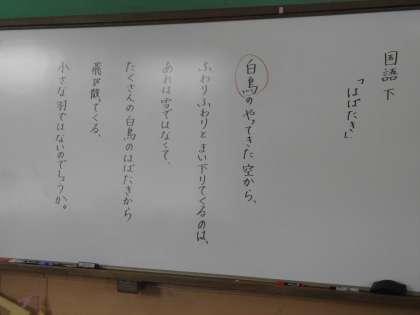 国語 下
「はばたき」
白鳥のやってきた空から、
ふわりふわりとまい下りてくるのは、
あれは雪ではなくて、
たくさんの白鳥のはばたきから
飛び散ってくる、
小さな羽ではないのでしょうか。